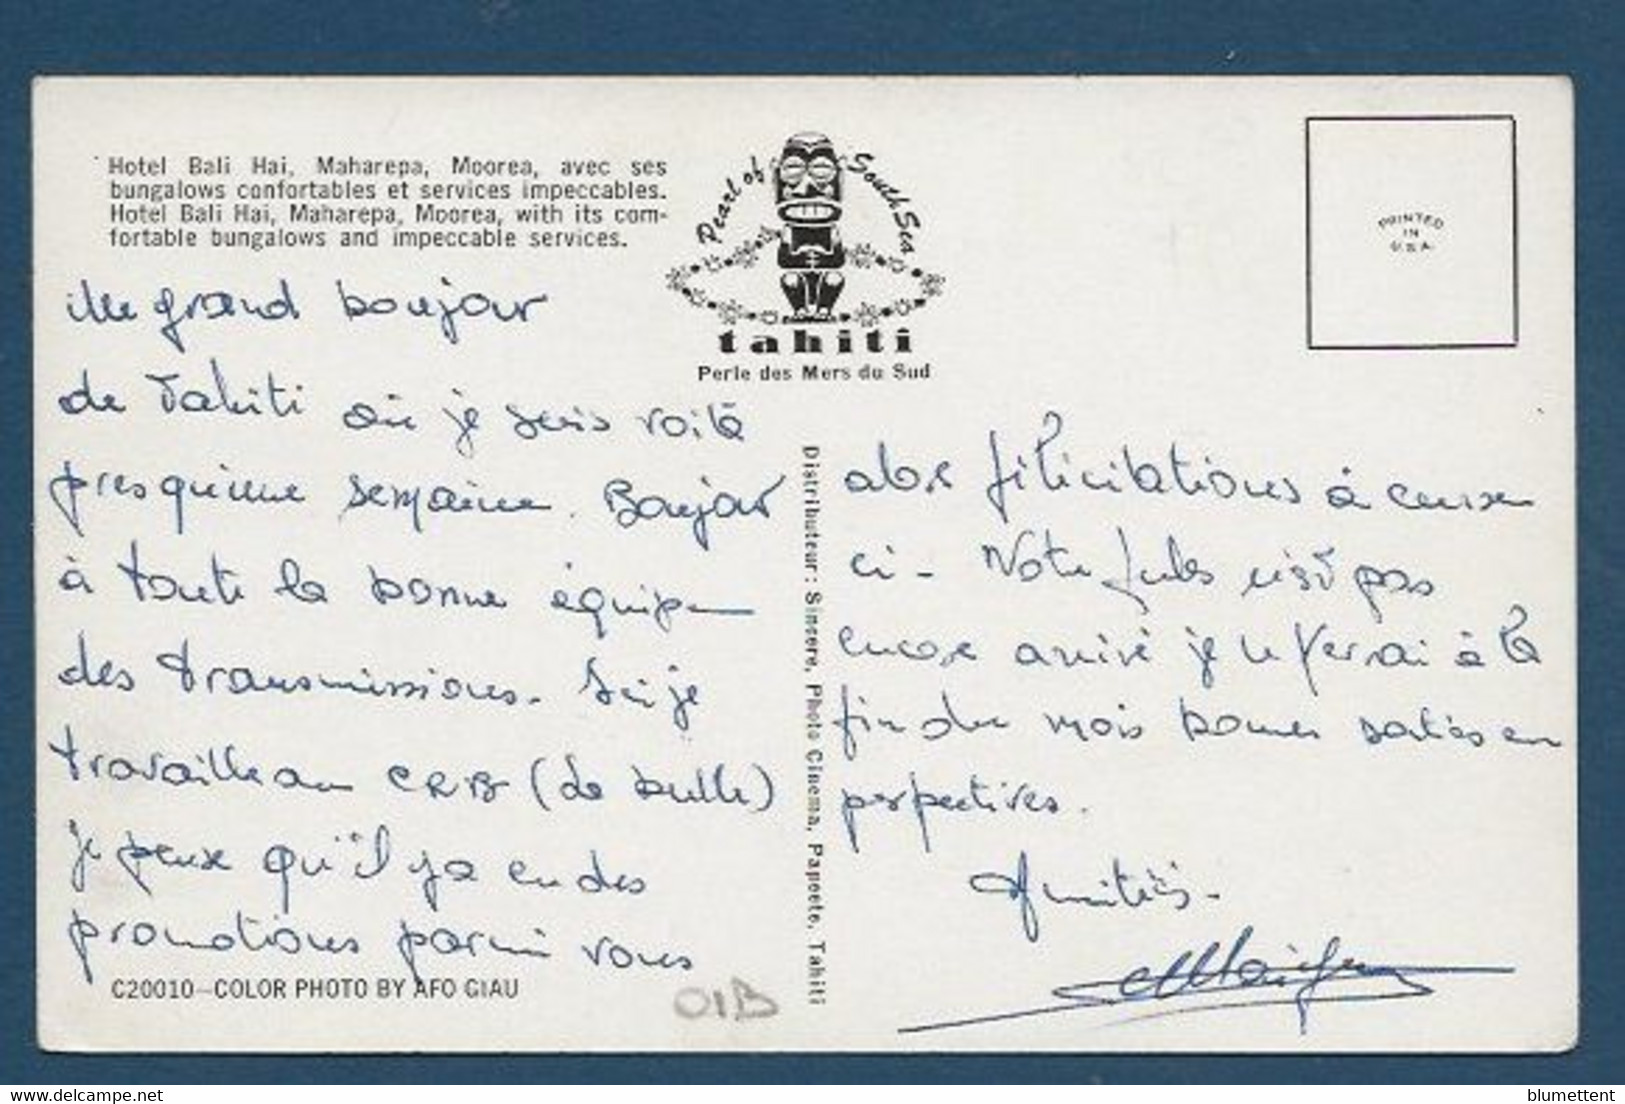 Hotel Bali Hai, Maharepa, Moorea, avec ses
bungalows confortables et services impeccables.
Hotel Bali Hai, Maharepa, Moorea, with its com-
fortable bungalows and impeccable services.
Pearl of South Sea
tahiti
Perle des Mers du Sud
PRINTED
IN
U.S.A.
grand bonjour
de Tahiti où je suis voilà
presqu'une semaine. Bonjour
à toute la bonne équipe
des transmissions. Ici je
travaille au CRB (de bulle)
Je peux qu'il y a eu des
promotions parmi vous
C20010-COLOR PHOTO BY AFO GIAU
01B
Distributeur : Sincere, Photo Cinema, Papeete, Tahiti
alors félicitations à ceux
ci - Votre n'est pas
encore arrivé je le ferrai à la
fin du mois bonnes soirées en
perspectives.
Amitiés.
blumettent